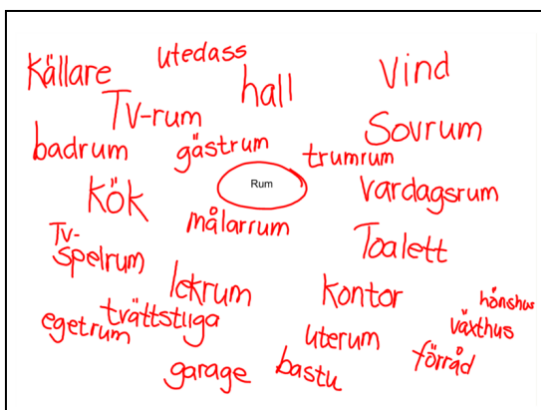 Källare
utedass
hall
Vind
TV-rum
Sovrum
badrum
gästrum
trumrum
Rum
kök
vardagsrum
målarrum
TV-
spelrum
Toalett
lekrum
kontor
hönshus
tvättstuga
växthus
egetrum
uterum
förråd
garage
bastu